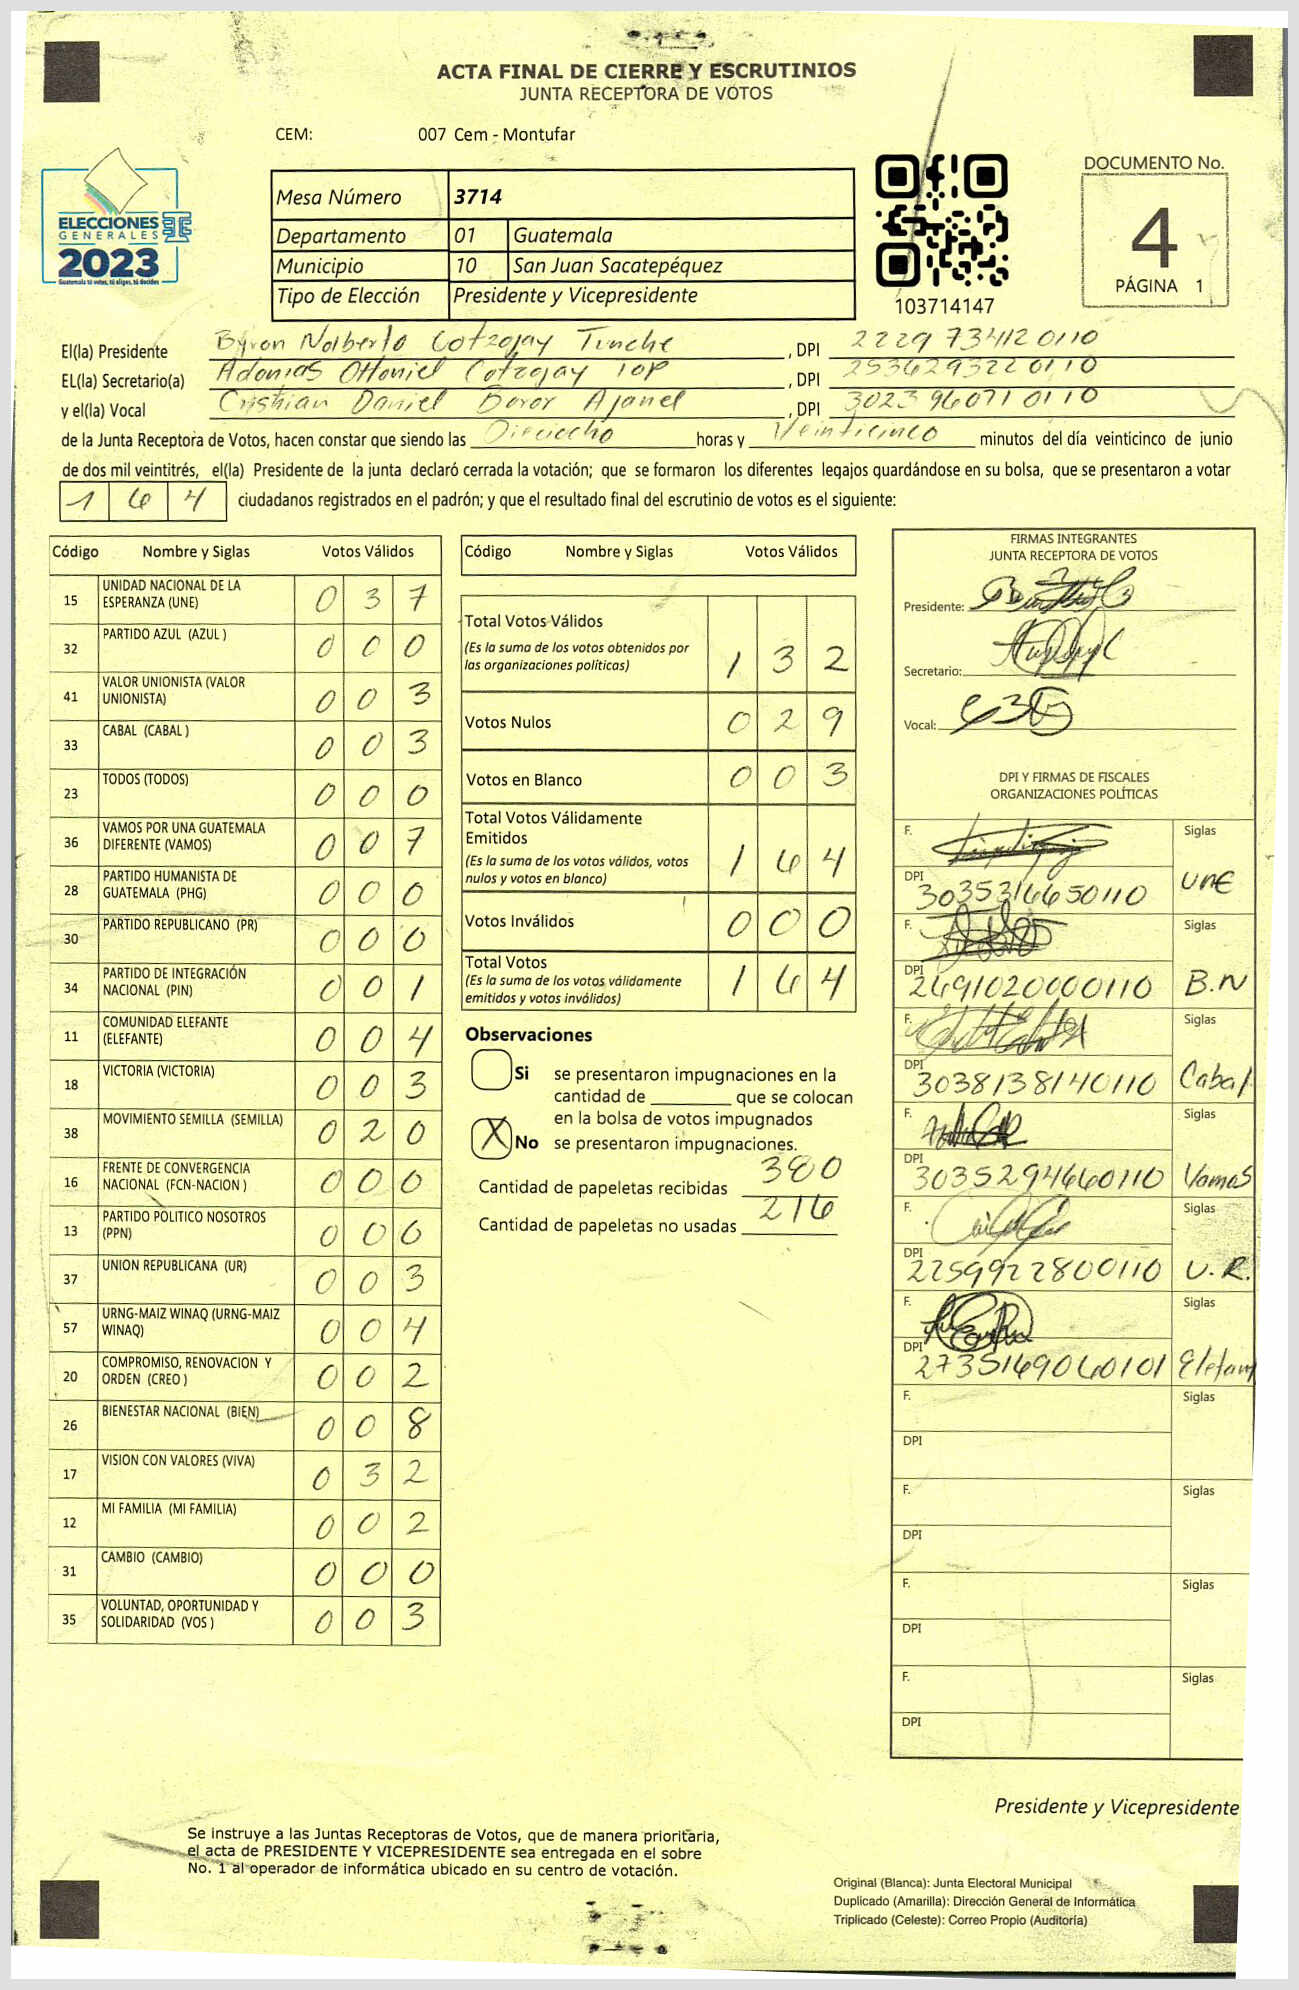 ACTA FINAL DE CIERRE Y ESCRUTINIOS
JUNTA RECEPTORA DE VOTOS
CEM: 007 Cem - Montufar
ELECCIONES
GENERALES
2023
Guatemala tú votas, tú eliges, tú decides
Mesa Número 3714
Departamento 01 Guatemala
Municipio 10 San Juan Sacatepéquez
Tipo de Elección Presidente y Vicepresidente
103714147
DOCUMENTO No.
4
PÁGINA 1
El(la) Presidente Byron Nolberto Cotzojay Tunche, DPI 2229 73412 0110
EL(la) Secretario(a) Adonias Ottoniel Cotzojay Top, DPI 253629322 0110
y el(la) Vocal Cristhian Daniel Boror Ajanel, DPI 3023 96071 0110
de la Junta Receptora de Votos, hacen constar que siendo las Dieciocho horas y Veinticinco minutos del día veinticinco de junio
de dos mil veintitrés, el(la) Presidente de la junta declaró cerrada la votación; que se formaron los diferentes legajos guardándose en su bolsa, que se presentaron a votar
1 6 4 ciudadanos registrados en el padrón; y que el resultado final del escrutinio de votos es el siguiente:
Código Nombre y Siglas Votos Válidos
15 UNIDAD NACIONAL DE LA ESPERANZA (UNE) 0 3 7
32 PARTIDO AZUL (AZUL ) 0 0 0
41 VALOR UNIONISTA (VALOR UNIONISTA) 0 0 3
33 CABAL (CABAL ) 0 0 3
23 TODOS (TODOS) 0 0 0
36 VAMOS POR UNA GUATEMALA DIFERENTE (VAMOS) 0 0 7
28 PARTIDO HUMANISTA DE GUATEMALA (PHG) 0 0 0
30 PARTIDO REPUBLICANO (PR) 0 0 0
34 PARTIDO DE INTEGRACIÓN NACIONAL (PIN) 0 0 1
11 COMUNIDAD ELEFANTE (ELEFANTE) 0 0 4
18 VICTORIA (VICTORIA) 0 0 3
38 MOVIMIENTO SEMILLA (SEMILLA) 0 2 0
16 FRENTE DE CONVERGENCIA NACIONAL (FCN-NACION ) 0 0 0
13 PARTIDO POLITICO NOSOTROS (PPN) 0 0 0
37 UNION REPUBLICANA (UR) 0 0 3
57 URNG-MAIZ WINAQ (URNG-MAIZ WINAQ) 0 0 4
20 COMPROMISO, RENOVACION Y ORDEN (CREO ) 0 0 2
26 BIENESTAR NACIONAL (BIEN) 0 0 8
17 VISION CON VALORES (VIVA) 0 3 2
12 MI FAMILIA (MI FAMILIA) 0 0 2
31 CAMBIO (CAMBIO) 0 0 0
35 VOLUNTAD, OPORTUNIDAD Y SOLIDARIDAD (VOS ) 0 0 3
Código Nombre y Siglas Votos Válidos
Total Votos Válidos
(Es la suma de los votos obtenidos por
las organizaciones políticas) 1 3 2
Votos Nulos 0 2 9
Votos en Blanco 0 0 3
Total Votos Válidamente
Emitidos
(Es la suma de los votos válidos, votos
nulos y votos en blanco) 1 6 4
Votos Inválidos 0 0 0
Total Votos
(Es la suma de los votos válidamente
emitidos y votos inválidos) 1 6 4
Observaciones
Si se presentaron impugnaciones en la
cantidad de ________ que se colocan
en la bolsa de votos impugnados
X No se presentaron impugnaciones.
Cantidad de papeletas recibidas 380
Cantidad de papeletas no usadas 216
FIRMAS INTEGRANTES
JUNTA RECEPTORA DE VOTOS
Presidente:
Secretario:
Vocal:
DPI Y FIRMAS DE FISCALES
ORGANIZACIONES POLÍTICAS
F. Siglas
DPI 3035316650110 UNE
F. Siglas
DPI 2691020000110 B.N
F. Siglas
DPI 3038138140110 Cabal
F. Siglas
DPI 3035294660110 Vamos
F. Siglas
DPI 2259922800110 U.R.
F. Siglas
DPI 2735169060101 Elefant
F. Siglas
DPI
F. Siglas
DPI
F. Siglas
DPI
F. Siglas
DPI
Presidente y Vicepresidente
Se instruye a las Juntas Receptoras de Votos, que de manera prioritaria,
el acta de PRESIDENTE Y VICEPRESIDENTE sea entregada en el sobre
No. 1 al operador de informática ubicado en su centro de votación.
Original (Blanca): Junta Electoral Municipal
Duplicado (Amarilla): Dirección General de Informática
Triplicado (Celeste): Correo Propio (Auditoría)